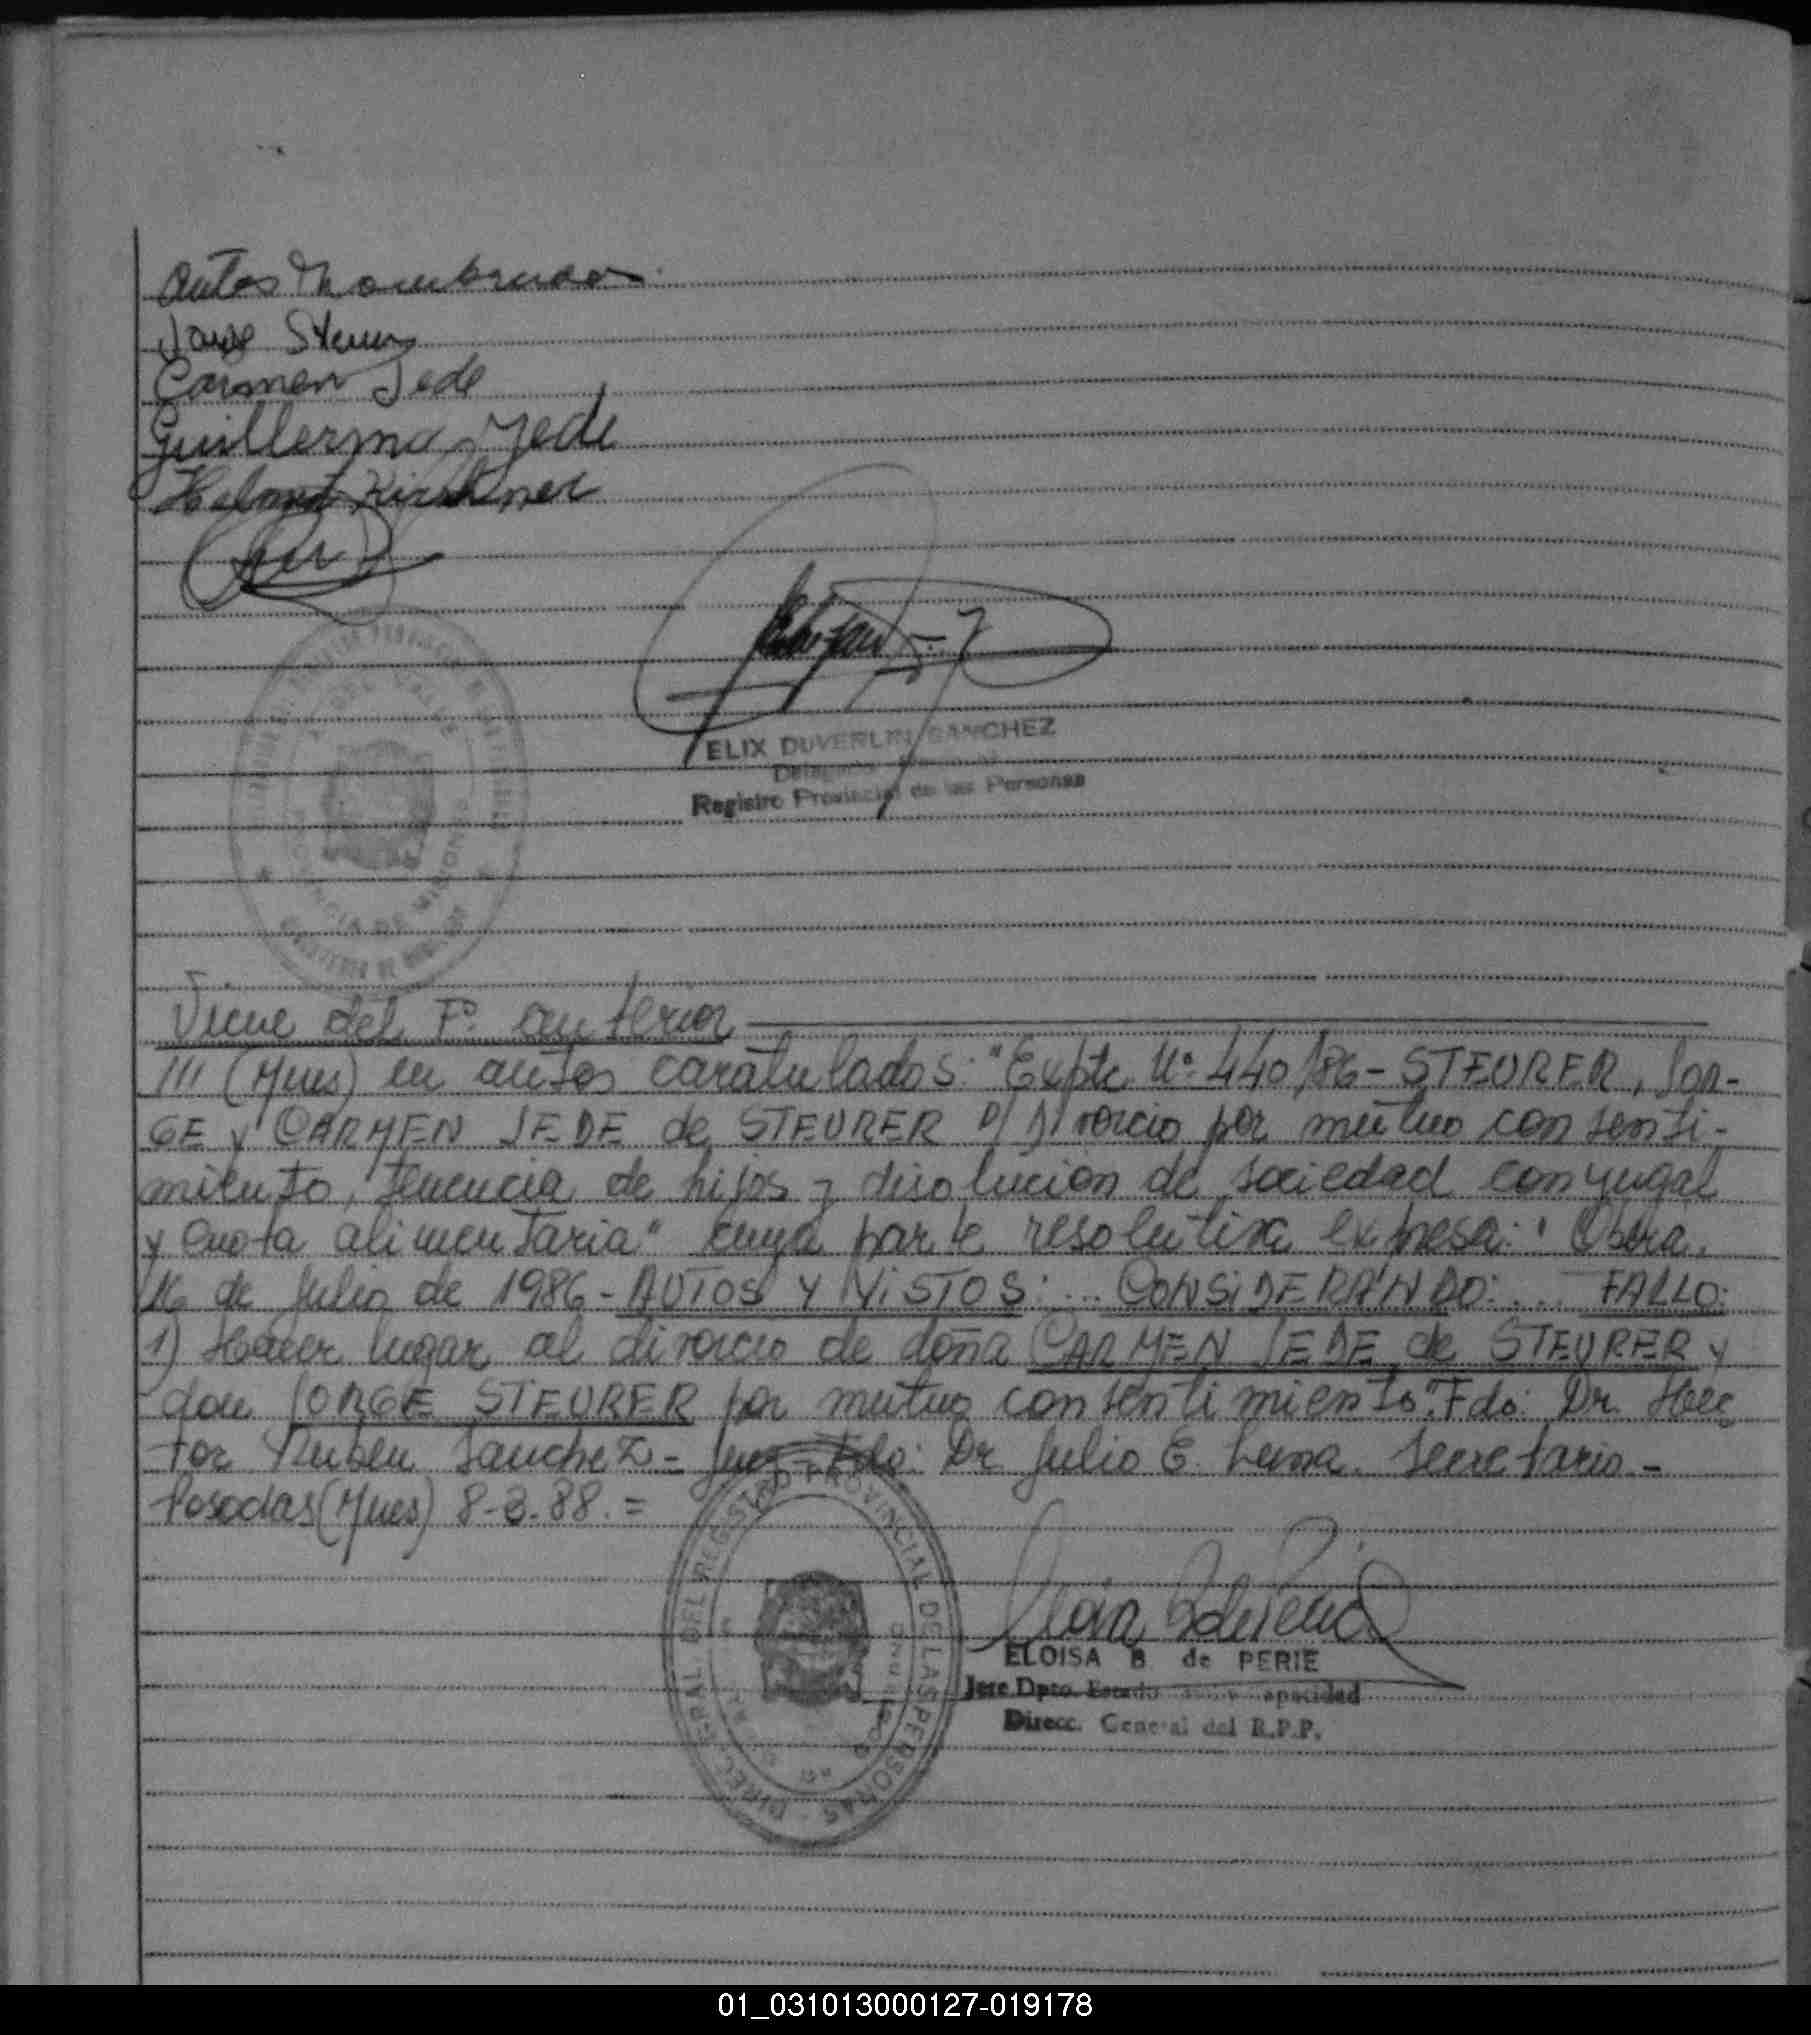 antes nombrados.
Jorge Steurer
Carmen Jede
Guillermo Jede
Helmut Kirchner
ELIX DUVERLIN SANCHEZ
Registro Provincial de las Personas
PROVINCIA DE MISIONES
Viene del Fº anterior
III (Mnes) en autos caratulados: "Expte Nº 440/86 - STEURER, Jor-
GE y CARMEN JEDE de STEURER s/ Divorcio por mutuo consenti-
miento, tenencia de hijos y disolucion de sociedad conyugal
y cuota alimentaria" cuya parte resolutiva expresa: "Obera,
16 de Julio de 1986 - AUTOS Y VISTOS: ... CONSIDERANDO: ... FALLO:
1) Hacer lugar al divorcio de doña CARMEN JEDE de STEURER y
don JORGE STEURER por mutuo consentimiento". Fdo: Dr. Hec
tor Ruben Sanchez - Juez - Fdo: Dr Julio E. Luna. Secretario -
Posadas (Mnes) 8-3-88. =
DIREC. GRAL. DEL REGISTRO PROVINCIAL DE LAS PERSONAS
ELOISA B de PERIE
Jefe Dpto. Estado Capacidad
Direcc. General del R.P.P.
01_031013000127-019178